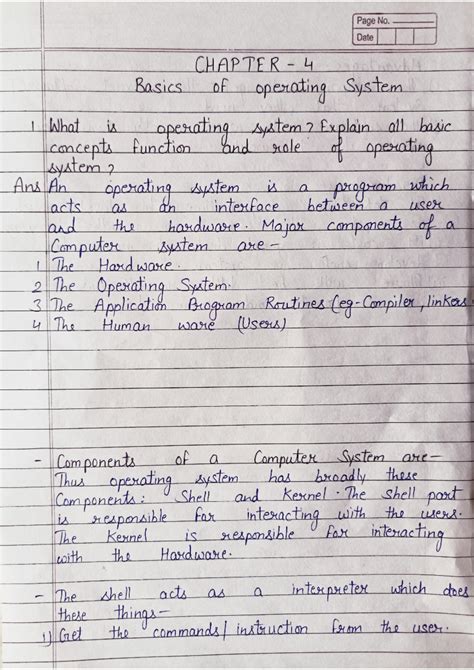 Page No.
Date
CHAPTER - 4
Basics of operating System
1 What is operating system? Explain all basic
concepts function and role of operating
system?
Ans An operating system is a program which
acts as an interface between a user
and the hardware. Major components of a
Computer system are -
1 The Hardware.
2 The Operating System.
3 The Application Program Routines (eg-Compiler, linkers
4 The Human ware (Users)
- Components of a Computer System are-
Thus operating system has broadly these
Components: Shell and Kernel. The shell part
is responsible for interacting with the users.
The Kernel is responsible for interacting
with the Hardware.
- The shell acts as a interpreter which does
these things-
1) Get the commands/instruction from the user.